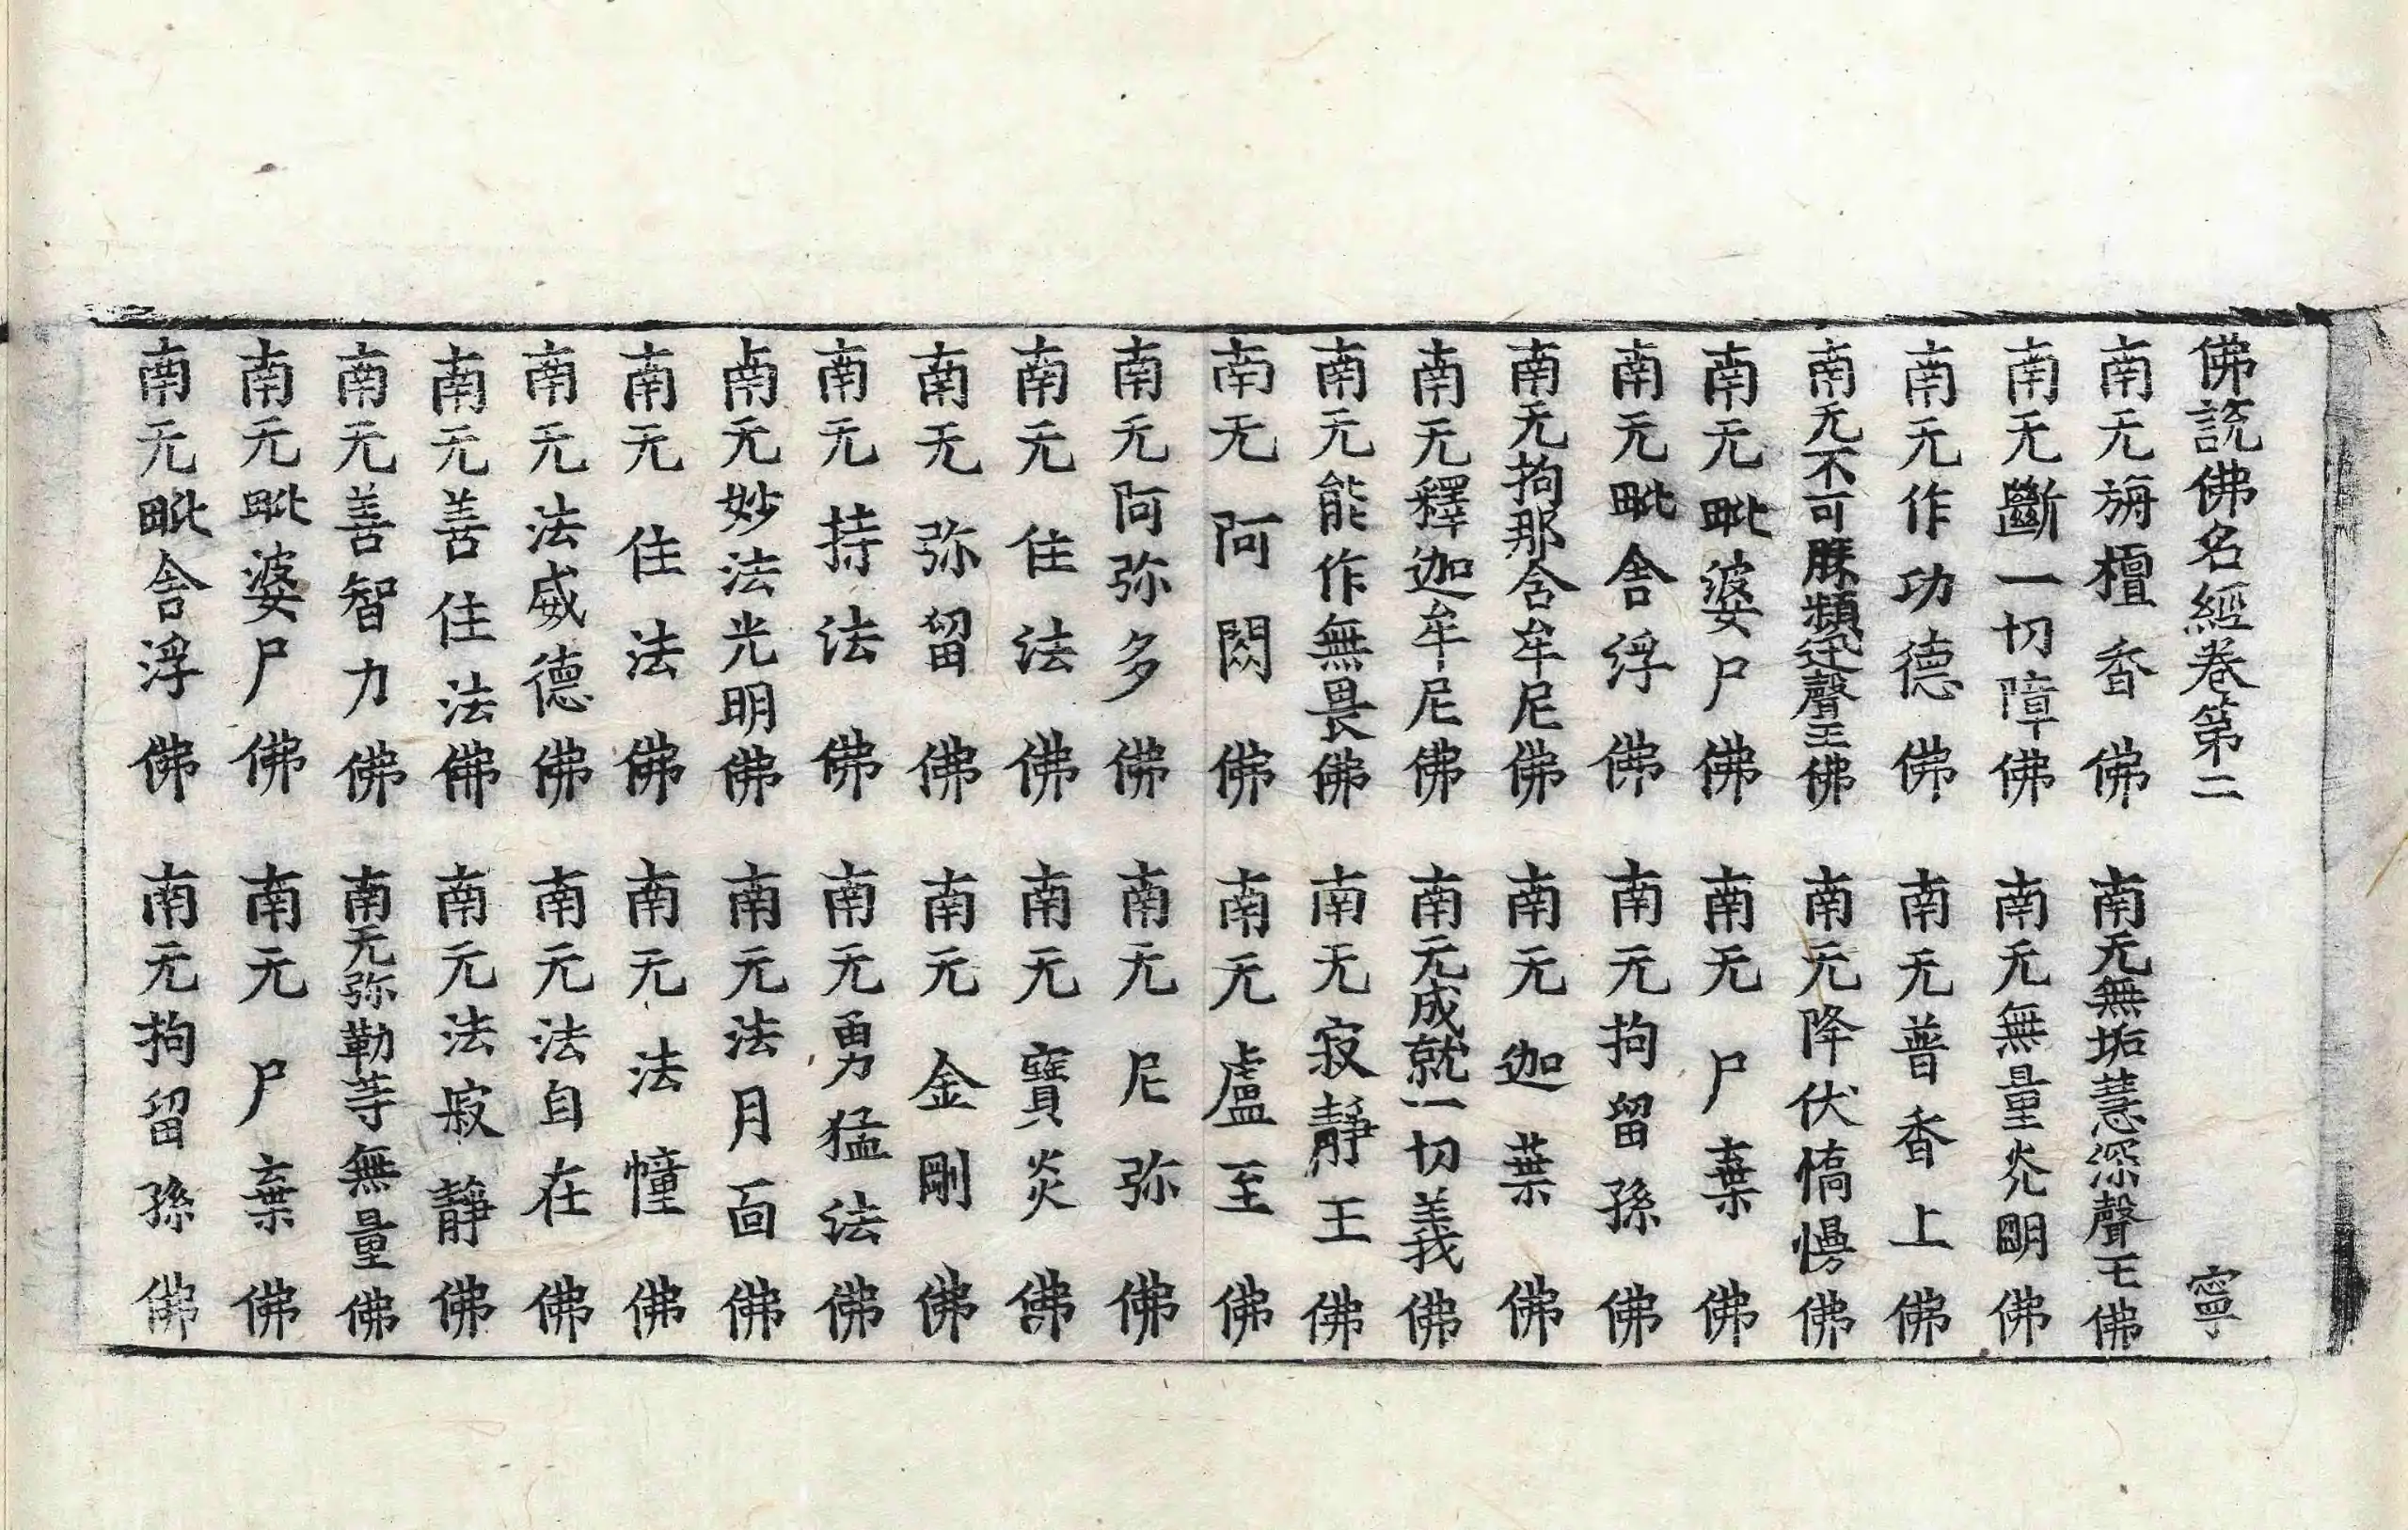 佛說佛名經卷第二 寧
南无旃檀香佛 南无無垢慧深聲王佛
南无斷一切障佛 南无無量光明佛
南无作功德佛 南无普香上佛
南无不可勝頻迅聲王佛 南无降伏憍慢佛
南无毗婆尸佛 南无尸棄佛
南无毗舍浮佛 南无拘留孫佛
南无拘那含牟尼佛 南无迦葉佛
南无釋迦牟尼佛 南无成就一切義佛
南无能作無畏佛 南无寂靜王佛
南无阿閦佛 南无盧至佛
南无阿弥多佛 南无尼弥佛
南无住法佛 南无寶炎佛
南无弥留佛 南无金剛佛
南无持法佛 南无勇猛法佛
南无妙法光明佛 南无法月面佛
南无住法佛 南无法幢佛
南无法威德佛 南无法自在佛
南无善住法佛 南无法寂靜佛
南无善智力佛 南无弥勒等無量佛
南无毗婆尸佛 南无尸棄佛
南无毗舍浮佛 南无拘留孫佛